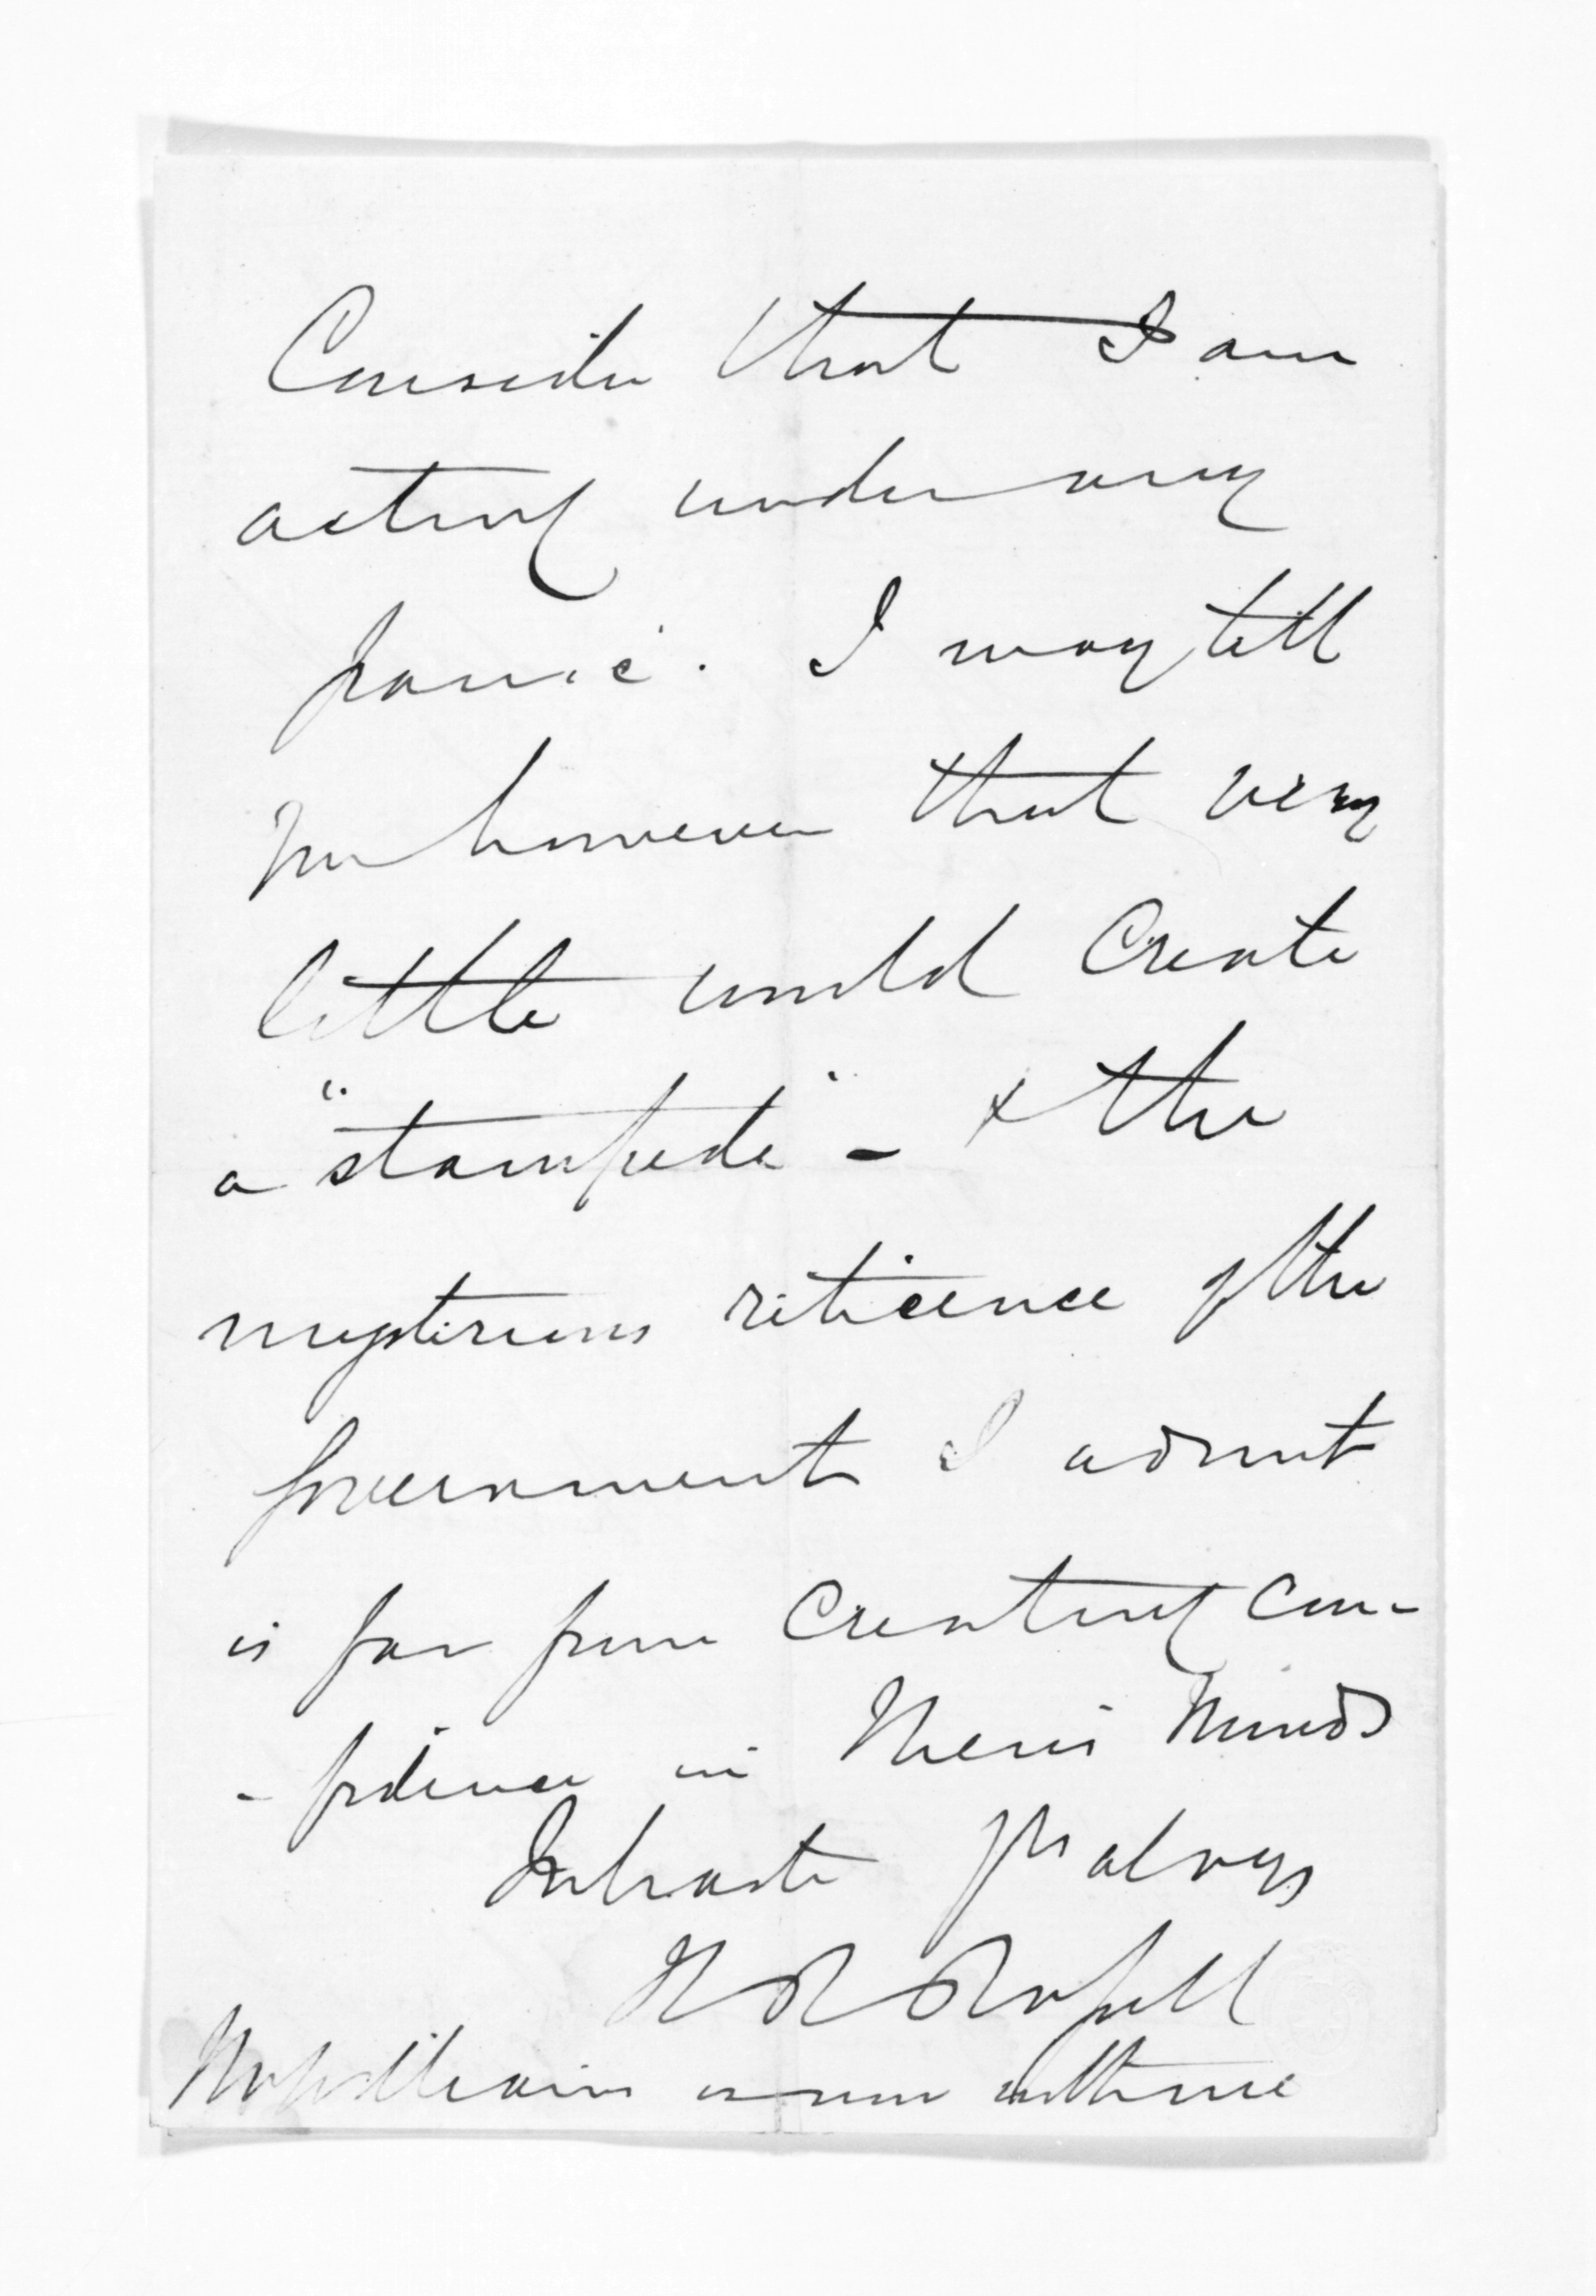 Consider that I am
acting under any
panic. I may tell
you however that very
little would create
a "stampede" - & the
mysterious reticence of the
Government I admit
is far from creating con-
-fidence in their minds
In haste Yrs always
Russell
is now with me